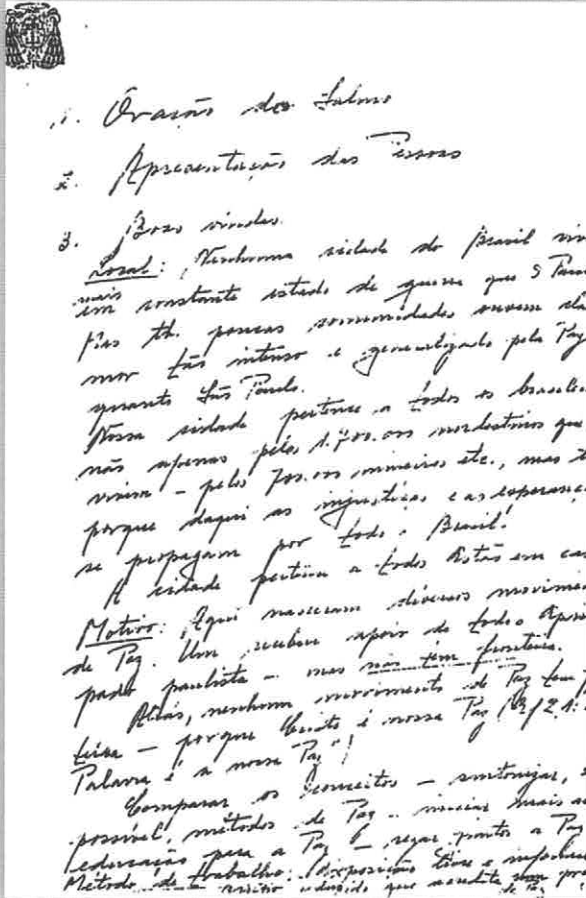 1. Oração dos Salmos
2. Apresentação das Pessoas
3. Boas vindas.
Local: Nenhuma cidade do Brasil viv
mais
em constante estado de guerra que S Paul
Mas tb. poucas comunidades ouvem cla
mor tão intenso e generalizado pela Paz
quanto São Paulo.
Nossa cidade pertence a todos os brasilei
não apenas pelos 1.700.000 nordestinos que
vivem – pelos 700.000 mineiros etc., mas t
porque daqui as injustiças e as esperanç
se propagam por todo o Brasil!
A cidade pertence a todos. Estão em cas
Motivo: Aqui nasceram diversos movime
de Paz. Um recebeu apoio de todo o Epis
pado paulista – mas não tem fronteira.
Aliás, nenhum movimento de Paz tem f
teira – porque Cristo é nossa Paz (Ef 2,1
Palavra é a nossa Paz"!
Comparar os conceitos – sintonizar, s
possível, métodos de Paz – iniciar mais a
educação para a Paz – rezar juntos a Paz
Método de trabalho: exposição livre e
que acredita